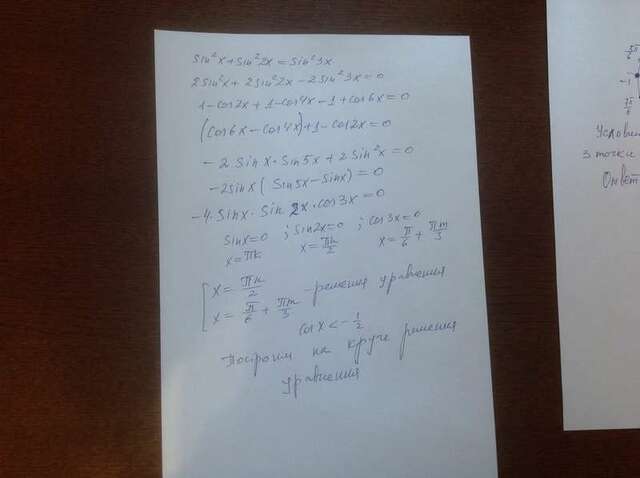 sin²x + sin²2x = sin²3x
2sin²x + 2sin²2x - 2sin²3x = 0
1 - cos2x + 1 - cos4x - 1 + cos6x = 0
(cos6x - cos4x) + 1 - cos2x = 0
-2 sinx · sin5x + 2sin²x = 0
-2sinx ( sin5x - sinx) = 0
-4 · sinx · sin 2x · cos3x = 0
sinx = 0 ; sin2x = 0 ; cos3x = 0
x = πk x = πn/2 x = π/6 + πm/3
[ x = πn/2
x = π/6 + πm/3 - решения уравнения
cosx < -1/2
Построим на круге решения
уравнения
5π/6
-1
7π/6
Услови
3 точки
Ответ